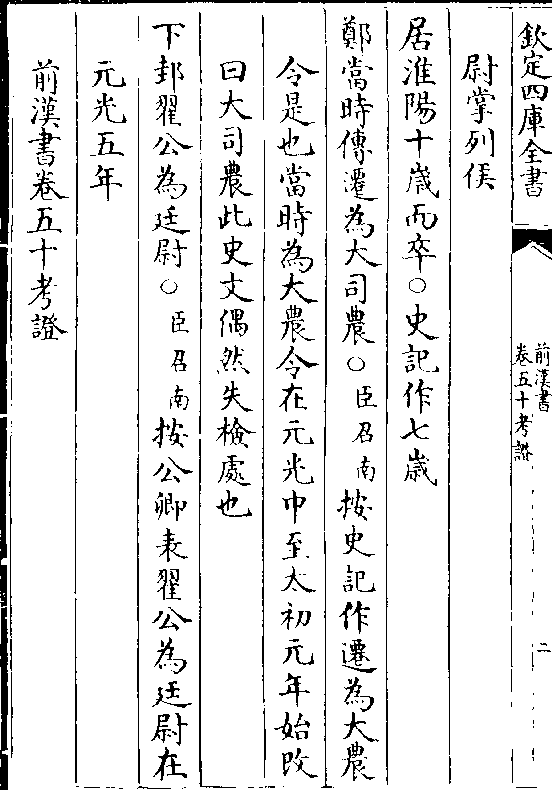 欽定四庫全書
前漢書
卷五十考證
二
尉掌列侯
居淮陽十歲而卒○史記作七歲
鄭當時傳遷為大司農○臣召南按史記作遷為大農
令是也當時為大農令在元光中至太初元年始改
曰大司農此史文偶然失檢處也
下邽翟公為廷尉○臣召南按公卿表翟公為廷尉在
元光五年
前漢書卷五十考證